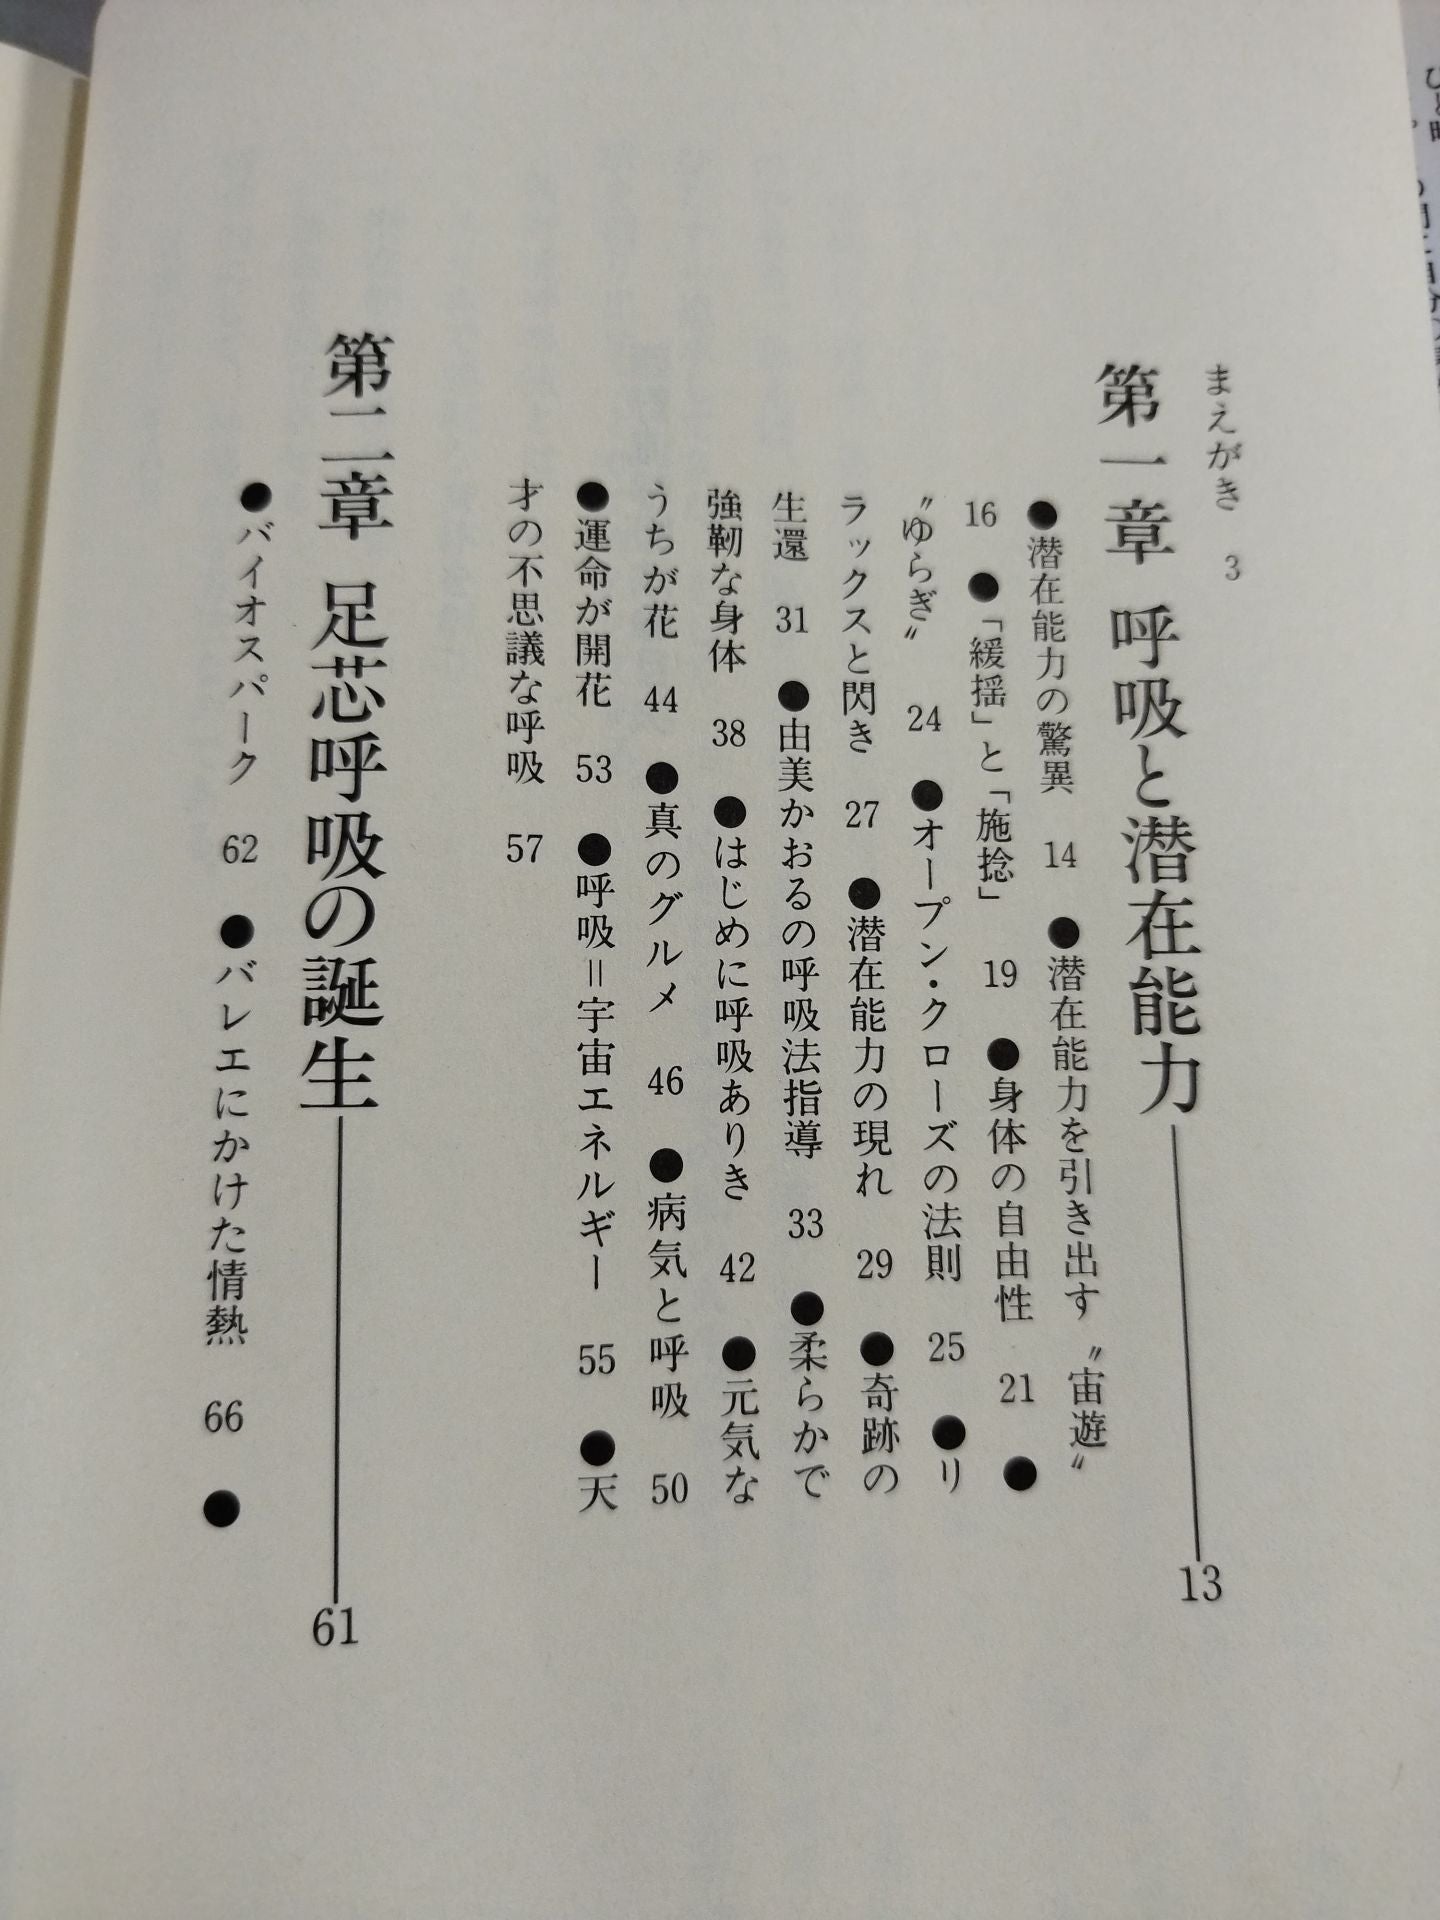 まえがき 3
第一章 呼吸と潜在能力 13
●潜在能力の驚異 14 ●潜在能力を引き出す〝宙遊〟
16 ●「緩揺」と「施捻」 19 ●身体の自由性 21 ●
〝ゆらぎ〟 24 ●オープン・クローズの法則 25 ●リ
ラックスと閃き 27 ●潜在能力の現れ 29 ●奇跡の
生還 31 ●由美かおるの呼吸法指導 33 ●柔らかで
強靭な身体 38 ●はじめに呼吸ありき 42 ●元気な
うちが花 44 ●真のグルメ 46 ●病気と呼吸 50
●運命が開花 53 ●呼吸＝宇宙エネルギー 55 ●天
才の不思議な呼吸 57
第二章 足芯呼吸の誕生 61
●バイオスパーク 62 ●バレエにかけた情熱 66 ●